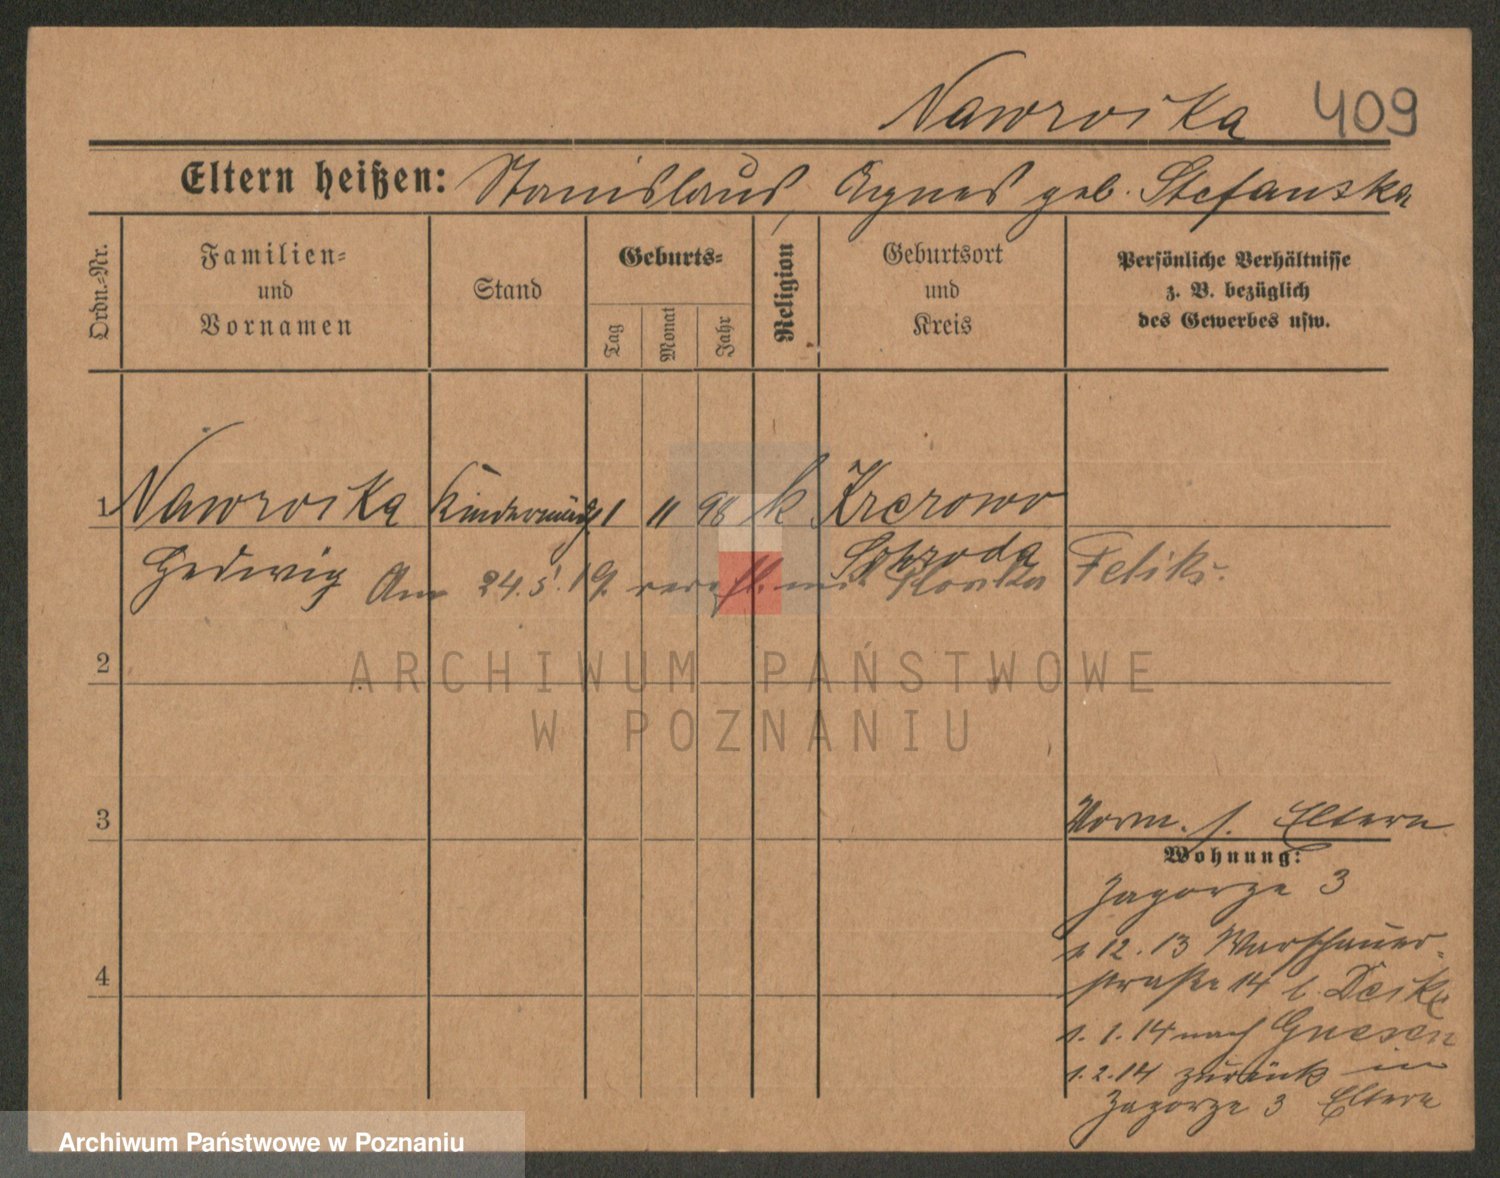 Nawroska 409
Eltern heißen: Stanislaus, Agnes geb. Stefanska
Ordn.-Nr.
Familien-
und
Vornamen
Stand
Geburts-
Tag
Monat
Jahr
Religion
Geburtsort
und
Kreis
Persönliche Verhältnisse
z. B. bezüglich
des Gewerbes usw.
1 Nawroska 1 11 98 k Krerowo
Hedwig Schroda
Am 24.5.19. verehl. mit Feliks.
2
ARCHIWUM PAŃSTWOWE
W POZNANIU
3
Vorm. s. Eltern
Wohnung:
Zagorze 3
1. 12. 13 Warschauer-
straße 14 b.
1. 1. 14 nach Gnesen
4
1. 2. 14 zurück in
Zagorze 3 Eltern
Archiwum Państwowe w Poznaniu